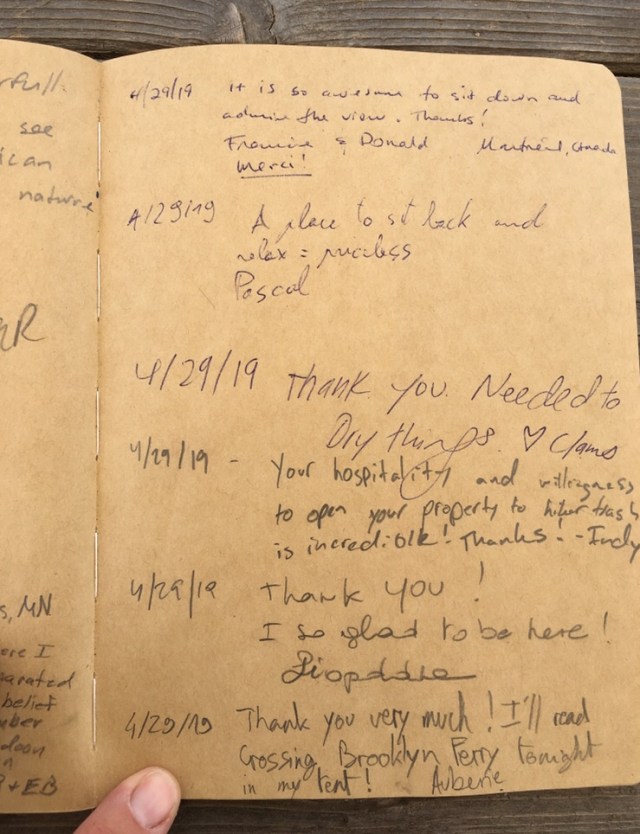 rfull.
see
ican
nature
R
s, MN
ere I
parated
belief
mber
+ EB
4/29/19 It is so awesome to sit down and
admire the view. Thanks!
Francine & Donald Montréal, Canada
Merci!
4/29/19 A place to sit back and
relax = priceless
Pascal
4/29/19 Thank you. Needed to
Dry things. ♡ Clams
4/29/19 - Your hospitality and willingness
to open your property to hiker trash
is incredible! Thanks! - Indy
4/29/19 Thank you !
I so glad to be here !
4/29/19 Thank you very much ! I'll read
Crossing Brooklyn Ferry tonight
in my tent ! Auberie